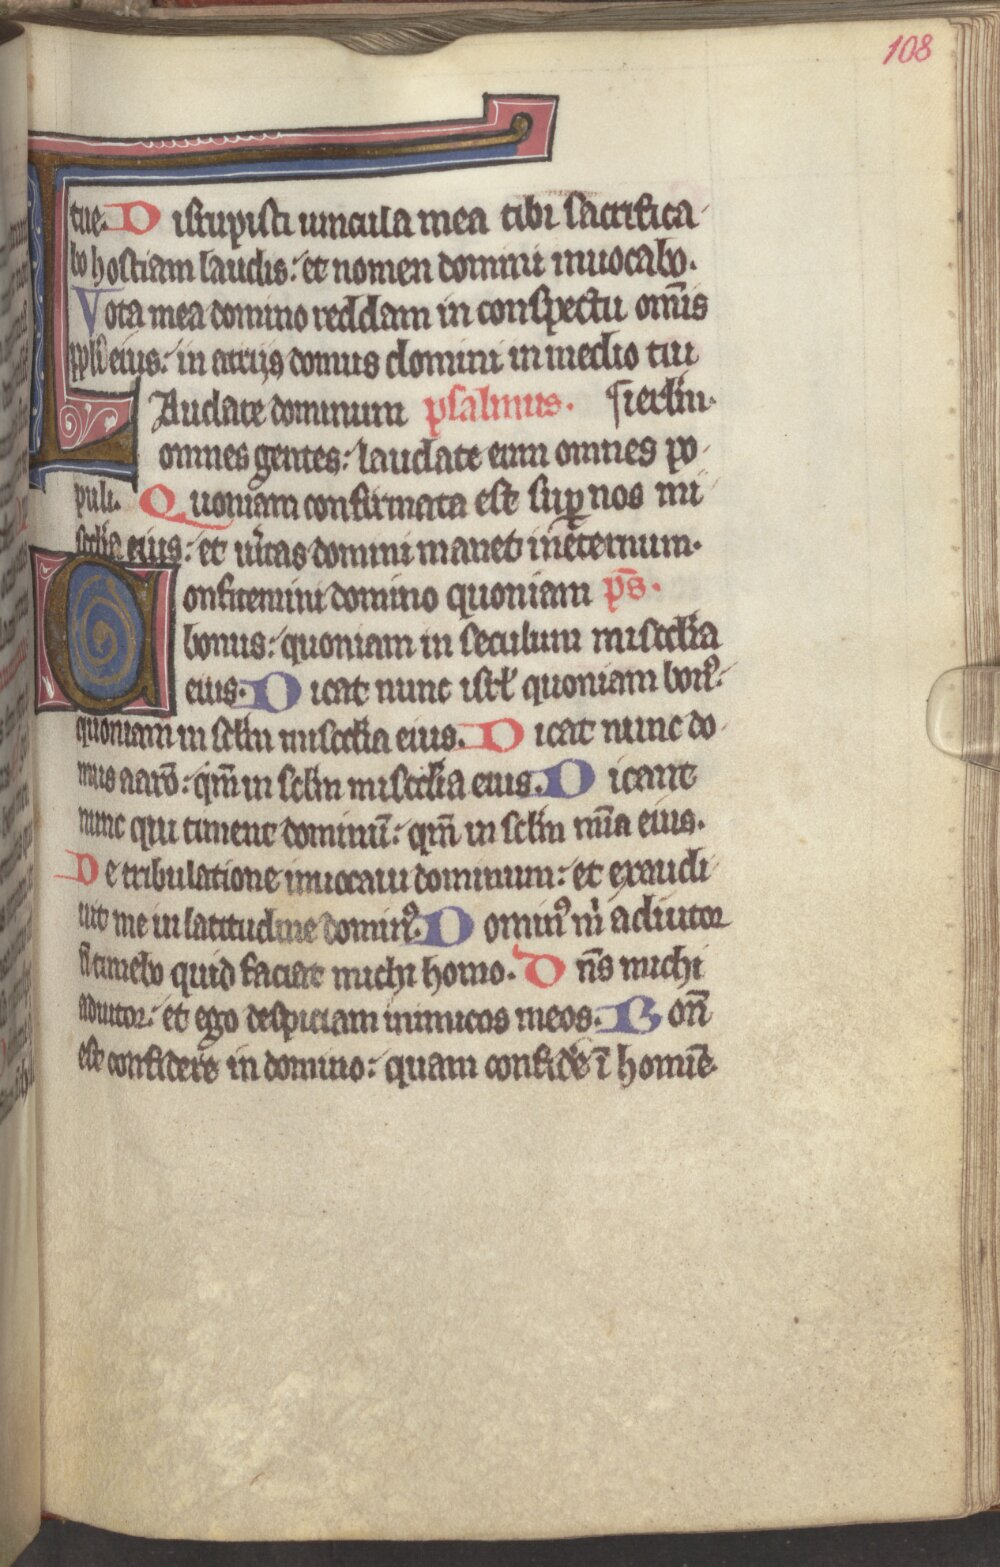 108
tue. Distupisti uincula mea tibi sacrifica
bo hostiam laudis: et nomen domini inuocabo.
Vota mea domino reddam in conspectu om̄is
pp̄li eius: in atrijs domus domini in medio tui
Laudate dominum psalmus. ¶ierl̄m.
omnes gentes: laudate eum omnes po
puli. Quoniam confirmata est suꝑ nos mi
sc̄dia eius: et ūitas domini manet in et̄ernum.
Confitemini domino quoniam p̄s.
bonus: quoniam in seculum misc̄dia
eius. Dicat nunc isrl̄ quoniam bonꝰ:
quoniam in sc̄lm misc̄dia eius. Dicat nunc do
mus aarō: qm̄ in sc̄lm misc̄dia eius. Dicant
nunc qui timent dominū: qm̄ in sc̄lm mīa eius.
De tribulatione inuocaui dominum: et exaudi
uit me in latitudine dominꝰ. Dominꝰ m̄ adiutor
n̄ timebo quid faciat michi homo. Dn̄s michi
adiutor: et ego despiciam inimicos meos. Bon̄
est confidere in domino: quam confidēe ī homīe.